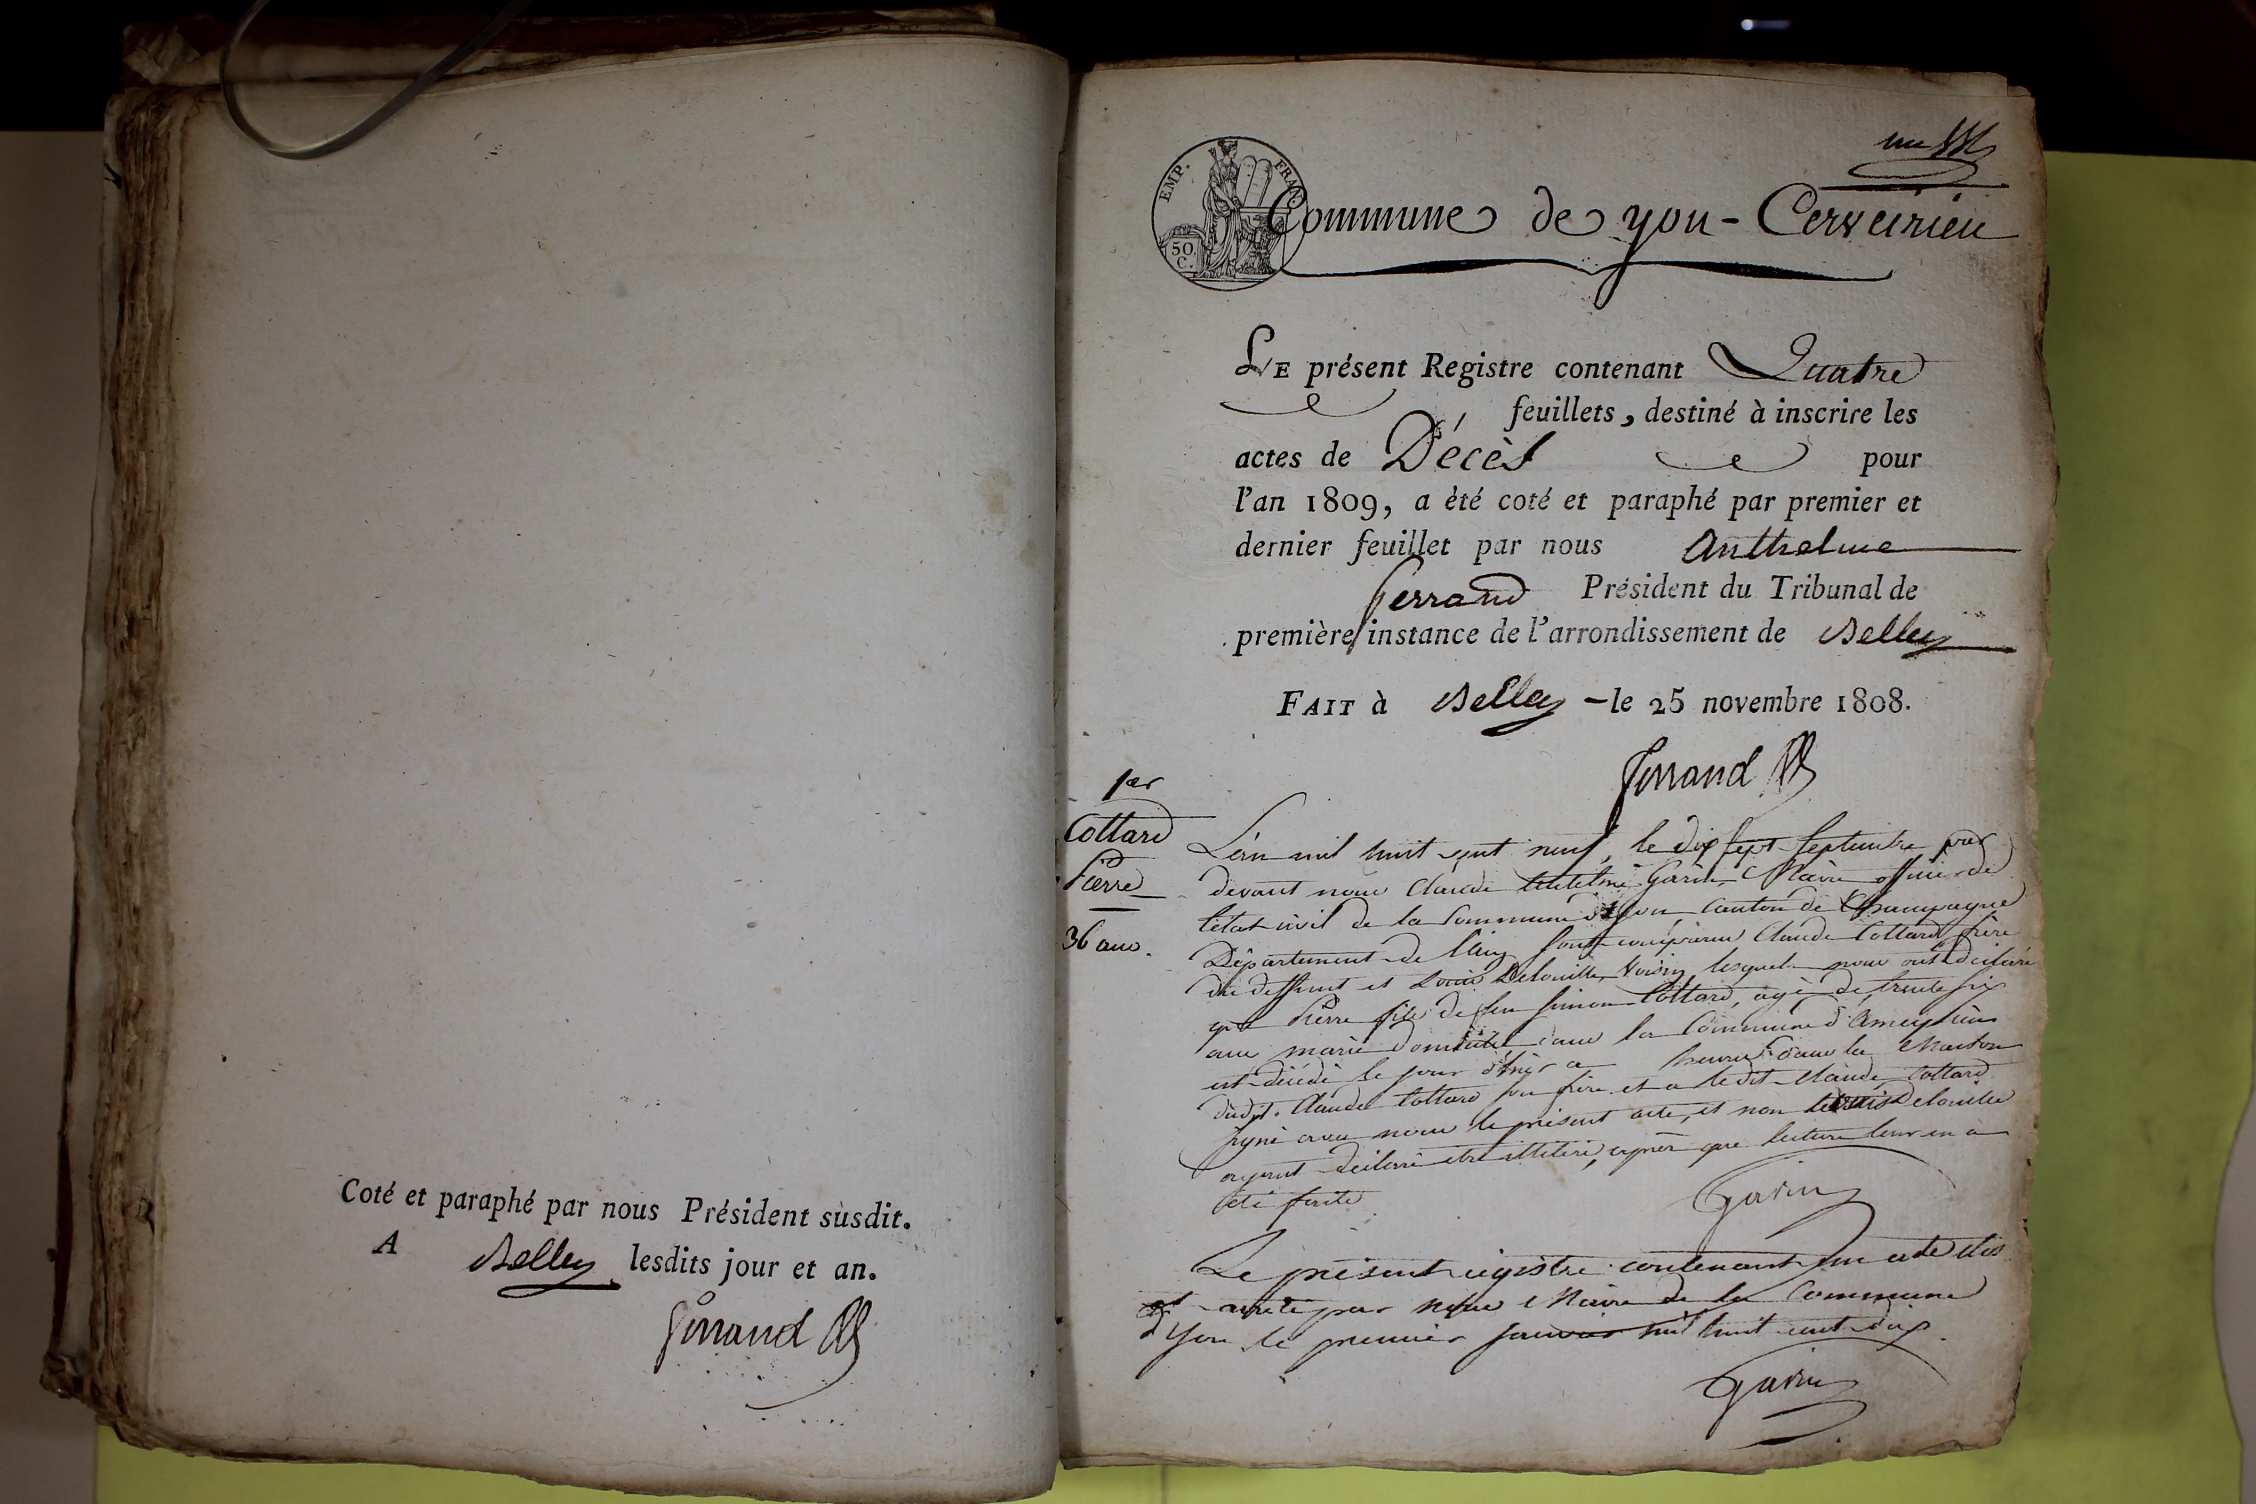 Coté et paraphé par nous Président susdit.
A Belley lesdits jour et an.
Ferrand
un
EMP. FRAN
50 C.
Commune de yon - Cerveirieu
LE présent Registre contenant Quatre
feuillets, destiné à inscrire les
actes de Décès pour
l'an 1809, a èté coté et paraphé par premier et
dernier feuillet par nous Anthelme
Ferrand Président du Tribunal de
première instance de l'arrondissement de Belley
FAIT à Belley - le 25 novembre 1808.
Ferrand
1er
Cottard
Pierre
36 ans.
L'an mil huit cent neuf, le dix sept Septembre par
devant nous Claude Anthelme Garin Maire officier de
l'état civil de la Commune d'yon Canton de Champagne
Département de l'ain sont comparu Claude Cottard frère
du deffunt et Louis Delouille Voisin lesquels nous ont déclaré
que Pierre fils de feu Simon Cottard, agé de trente six
ans marié domicilié dans la Commune d'Ameyzieu
est décédé le jour d'hier a heures dans la Maison
dudit Claude Cottard son frère et a ledit Claude Cottard
signé avec nous le présent acte, et non Louis Delouille
ayant déclaré etre illitéré, après que lecture leur en a
été faite
Garin
Le présent registre contenant un acte clos
et arrété par nous Maire de la Commune
d'yon le premier janvier mil huit cent dix.
Garin